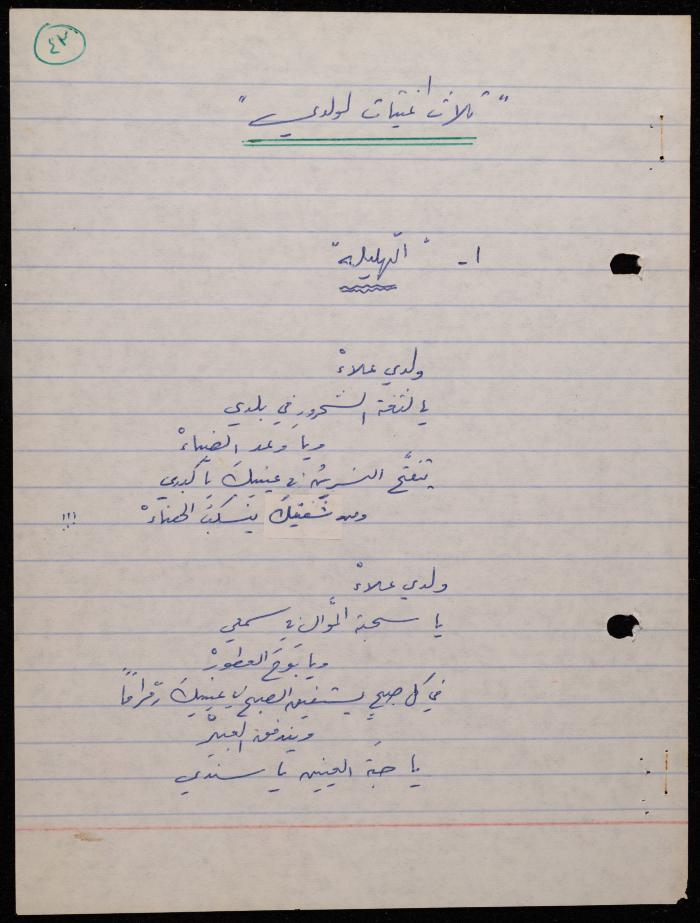 ٤٣
"ثلاث أغنيات لولدي"
١- "التهليلة"
ولدي علاءْ
يا لثغة الشحرور في بلدي
ويا وعد الضياءْ
يتفتّح النسرين في عينيكَ يا كبدي
ومن شفتيكَ ينسكبُ الحناءْ !!!
ولدي علاءْ
يا سحبة الموّال في سمعي
ويا بَوحَ العطورْ
في كل صبحٍ يستفيق الصبح في عينيكَ رقراقاً
ويندفق العبيرْ
يا حبّة العينين يا سندي